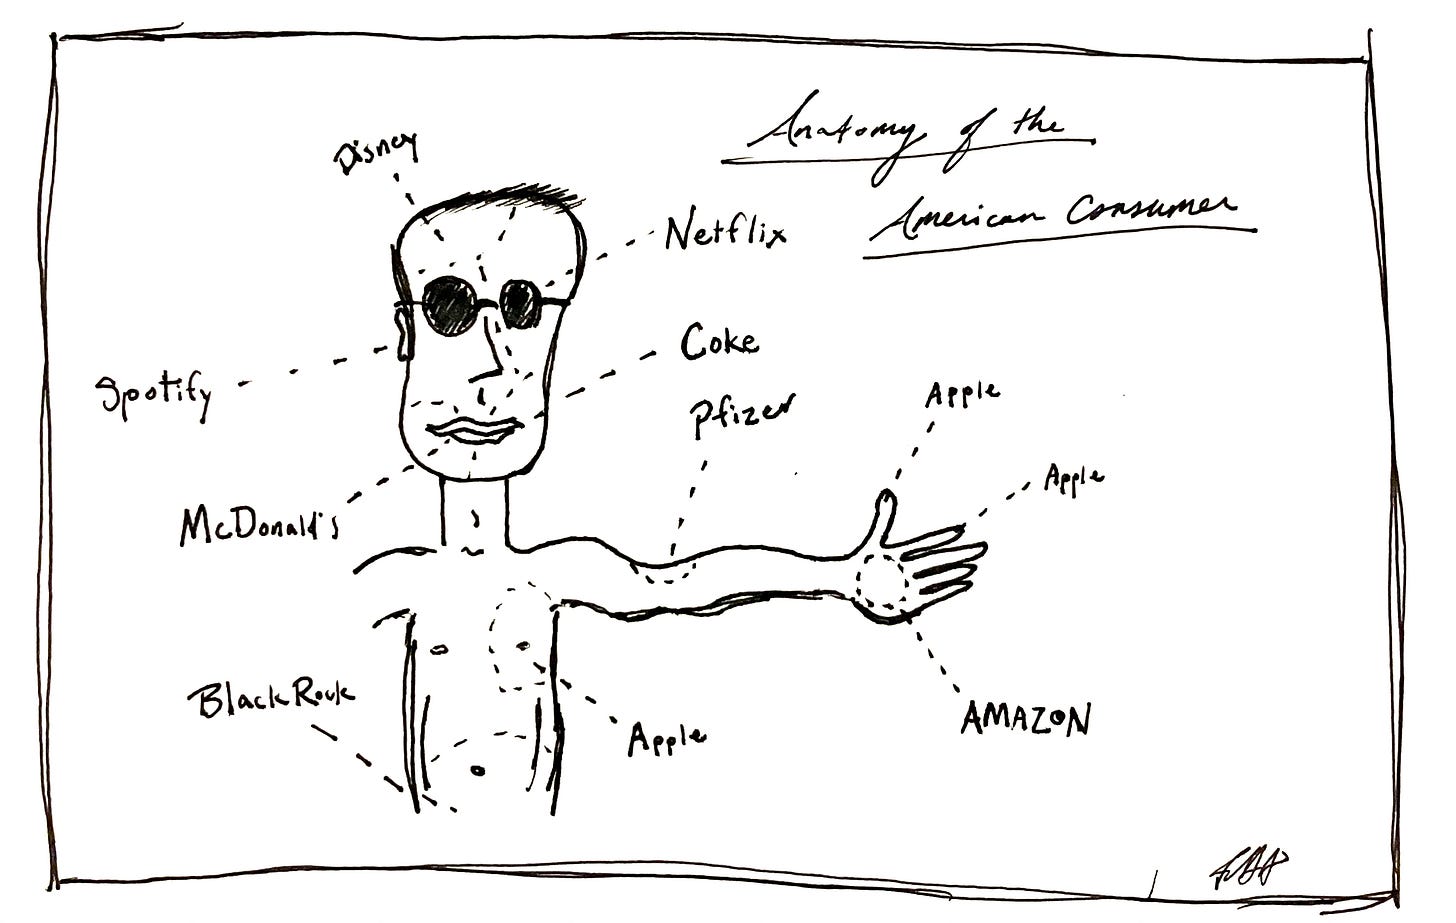 Anatomy of the
American Consumer
Disney
Netflix
Coke
Spotify
Pfizer
Apple
Apple
McDonald's
BlackRock
Apple
AMAZON